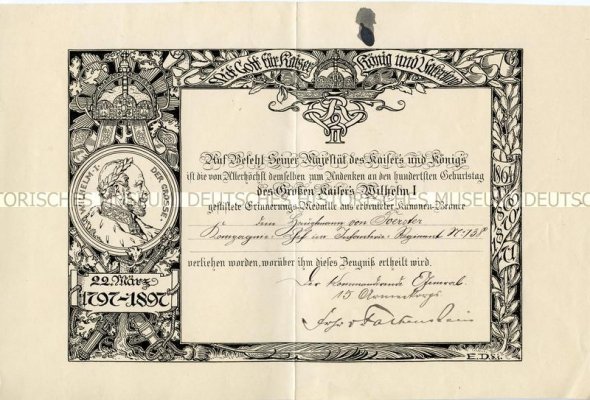 Mit Gott für Kaiser König und Vaterland
Auf Befehl Seiner Majestät des Kaisers und Königs
ist die von Allerhöchst demselben zum Andenken an den hundertsten Geburtstag
des Großen Kaisers Wilhelm I
gestiftete Erinnerungs-Medaille aus erbeuteter Kanonen-Bronce
dem Hauptmann von Foerster
Kompagnie-Chef im Infanterie-Regiment N°
verliehen worden, worüber ihm dieses Zeugniß ertheilt wird.
Der Kommandirende General
15 Armeekorps
Frhr v Falkenstein
WILHELM
DER GROSSE
22. März
1797-1897
1864
E.D.
TORISCHES MUSEUM
DEUTSCH